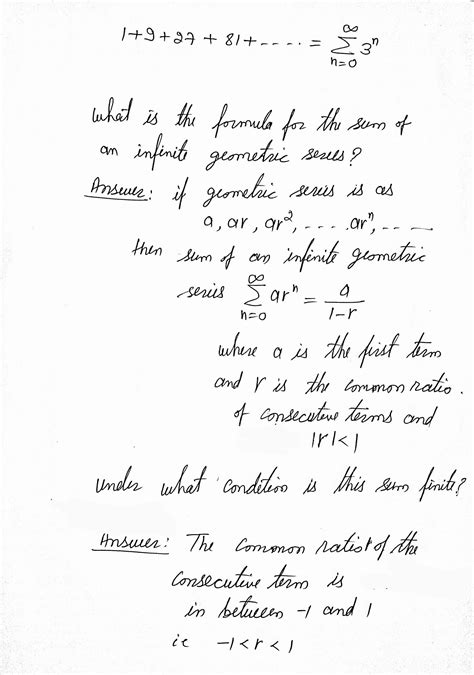 1+9+27+81+----- = ∑_{n=0}^{∞} 3^n
What is the formula for the sum of
an infinite geometric series?
Answer: if geometric series is as
a, ar, ar², ---- ar^n, -- --
then sum of an infinite geometric
series ∑_{n=0}^{∞} ar^n = a/(1-r)
where a is the first term
and r is the common ratio.
of consecutive terms and
|r|<1
under what condition is this sum finite?
Answer: The common ratio r of the
consecutive term is
in between -1 and 1
ie -1<r<1